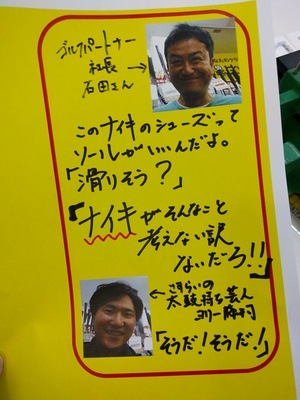 ゴルフパートナー
社長 →
石田さん
このナイキのシューズって
ソールがいいんだよ。
「滑りそう?」
「ナイキがそんなこと
考えない訳
ないだろ!!」
← さすらいの
太鼓持ち芸人
ヨリー
「そうだ!そうだ!」